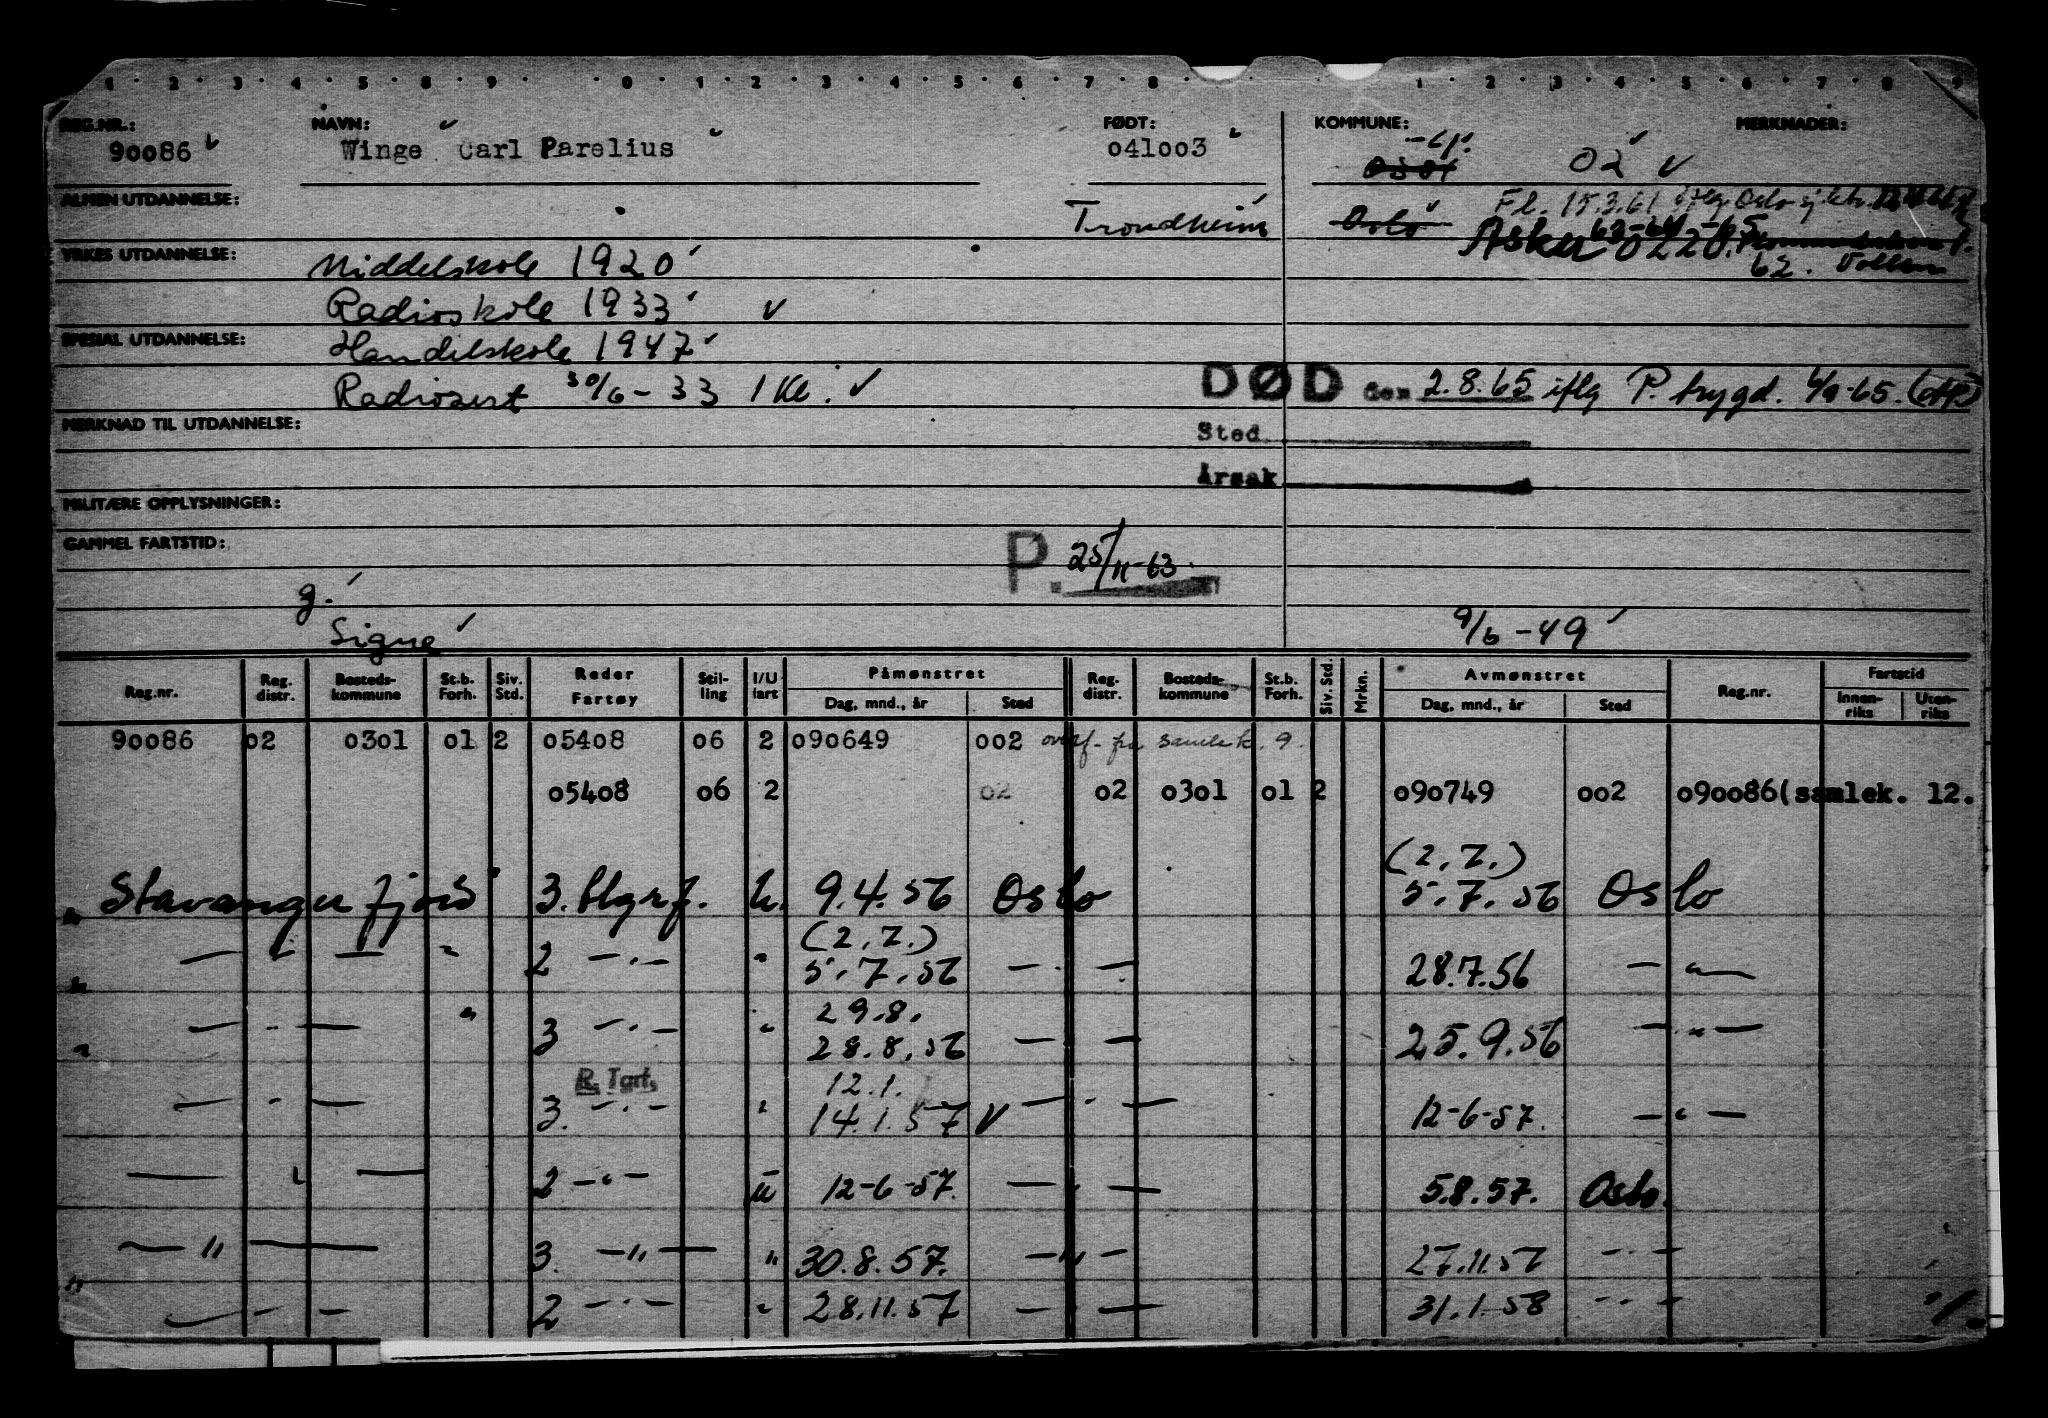 1 2 3 4 5 6 7 8 9 0 1 2 3 4 5 6 7 8 1 2 3 4 5 6 7 8 9
REG.NR.: NAVN: FØDT: KOMMUNE: MERKNADER:
90086 Winge Carl Parelius 041003 02
ALMEN UTDANNELSE: Fl. 15.3.61 iflg. Oslo
Trondheim Oslo Asker 0220. 62-64-65
YRKES UTDANNELSE: 62. Vollen
Middelskole 1920
Radioskole 1933
SPESIAL UTDANNELSE: Handelskole 1947
Radiosert 30/6-33 1 Kl. DØD den 2.8.65 iflg P. trygd.
MERKNAD TIL UTDANNELSE: Sted
Årsak
MILITÆRE OPPLYSNINGER:
GAMMEL FARTSTID: P. 25/11-63.
g.
Signe 9/6-49
Reg.nr. Reg. distr. Bosteds-kommune St.b. Forh. Siv. Std. Reder Fartøy Stil-ling I/U fart Påmønstret Dag, mnd., år Sted Reg. distr. Bosteds-kommune St.b. Forh. Siv. Std. Mrkn. Avmønstret Dag, mnd., år Sted Reg.nr. Fartstid Innen-riks Uten-riks
90086 02 0301 01 2 05408 06 2 090649 002 overf. fra samlek. 9.
05408 06 2 02 02 0301 01 2 090749 002 090086(samlek. 12.
(2.7.)
Stavangerfjord 3. tlgrf. u. 9.4.56 Oslo 5.7.56 Oslo
(2.7.)
— " — " 2 — " — " 5.7.56 — " — 28.7.56 — " —
29.8.
— " — " 3 — " — " 28.8.56 — " — 25.9.56 — " —
R. Tart. 12.1.
— " — 3. — " — " 14.1.57 — " — 12-6-57. — " —
— " — 2 — " — u 12-6-57. — " — 5.8.57. Oslo.
— " — 3. — " — " 30.8.57. — " — 27.11.57 — " —
— " — 2 — " — " 28.11.57 — " — 31.1.58 — " —